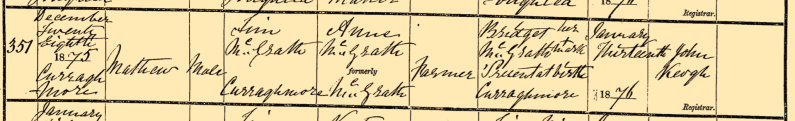 Registrar.
351
December
Twenty
Eighth
1875
Curragh
more
Mathew
Male
Tim
McGrath
Curraghmore
Anne
McGrath
formerly
McGrath
Farmer
Bridget her
McGrath mark
Present at birth
Curraghmore
January
Thirteenth
1876
John
Keogh
Registrar.
January